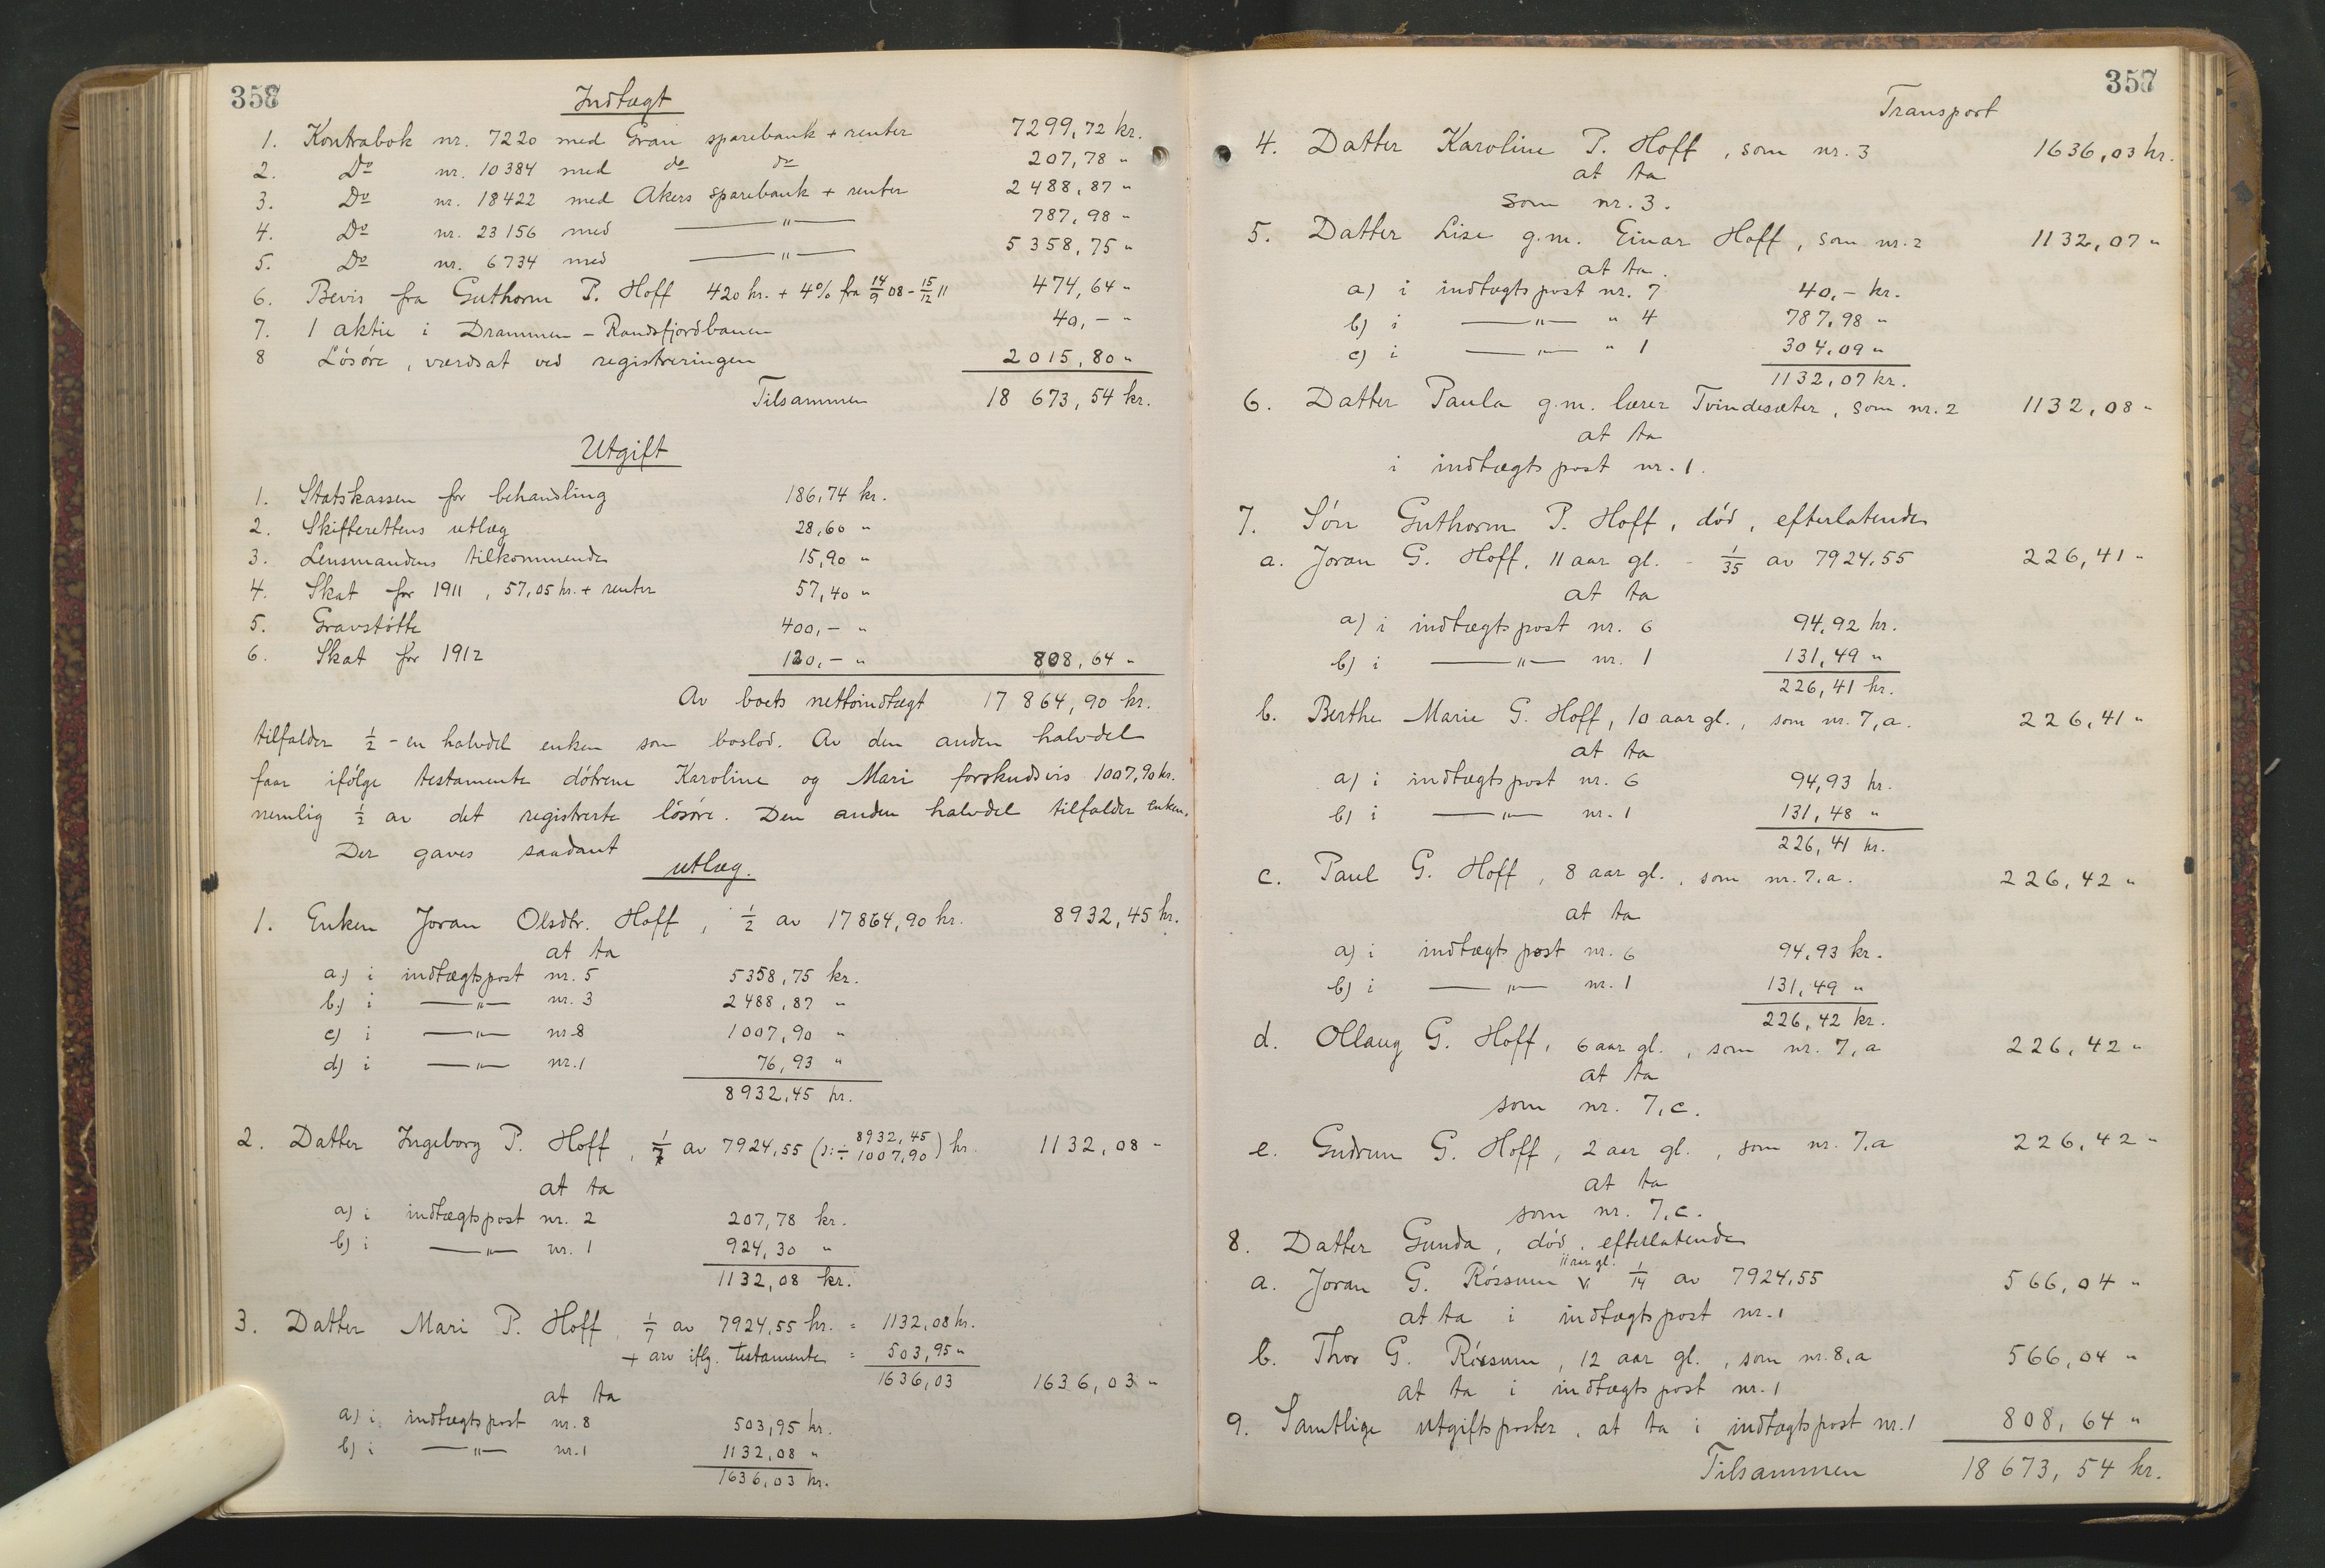 358
Indtægt
1. Kontrabok nr. 7220 med Gran sparebank + renter 7299,72 kr.
2. Do nr. 10384 med do do 207,78 "
3. Do nr. 18422 med Akers sparebank + renter 2488,87 "
4. Do nr. 23156 med —"— 787,98 "
5. Do nr. 6734 med —"— 5358,75 "
6. Bevis fra Guthorm P. Hoff 420 kr. + 4% fra 14/9 08 - 15/12 11 474,64 "
7. 1 aktie i Drammen - Randsfjordbanen 40,- "
8 Løsøre, værdsat ved registreringen 2015,80 "
Tilsammen 18 673,54 kr.
Utgift
1. Statskassen for behandling 186,74 kr.
2. Skifterettens utlæg 28,60 "
3. Lensmandens tilkommende 15,90 "
4. Skat for 1911, 57,05 kr. + renter 57,40 "
5. Gravstøtte 400,- "
6. Skat for 1912 120,- " 808,64 "
Av boets nettoindtægt 17 864,90 kr.
tilfalder 1/2 - en halvdel enken som boslod. Av den anden halvdel
faar ifølge testamente døtrene Karoline og Mari forskudsvis 1007,90 kr.
nemlig 1/2 av det registrerte løsøre. Den anden halvdel tilfalder enken.
Der gaves saadant
utlæg.
1. Enken Joran Olsdtr. Hoff, 1/2 av 17864,90 kr. 8932,45 kr.
at ta
a) i indtægtspost nr. 5 5358,75 kr.
b) i —"— nr. 3 2488,87 "
c) i —"— nr. 8 1007,90 "
d) i —"— nr. 1 76,93 "
8932,45 kr.
2. Datter Ingeborg P. Hoff, 1/7 av 7924,55 (ɔ: 8932,45 ÷ 1007,90) kr. 1132,08 "
at ta
a) i indtægtspost nr. 2 207,78 kr.
b) i —"— nr. 1 924,30 "
1132,08 kr.
3. Datter Mari P. Hoff, 1/7 av 7924,55 kr. = 1132,08 kr.
+ arv iflg. testamente = 503,95 "
1636,03 1636,03 "
at ta
a) i indtægtspost nr. 8 503,95 kr.
b) i —"— nr. 1 1132,08 "
1636,03 kr.
357
Transport
4. Datter Karoline P. Hoff, som nr. 3 1636,03 kr.
at ta
som nr. 3.
5. Datter Lise g.m. Einar Hoff, som nr. 2 1132,07 "
at ta.
a) i indtægtspost nr. 7 40,- kr.
b) i —"— " 4 787,98 "
c) i —"— " 1 304,09 "
1132,07 kr.
6. Datter Paula g.m. lærer Tvindesæter, som nr. 2 1132,08 "
at ta
i indtægtspost nr. 1.
7. Søn Guthorm P. Hoff, død, efterlatende
a. Joran G. Hoff, 11 aar gl. - 1/35 av 7924,55 226,41 "
at ta
a) i indtægtspost nr. 6 94,92 kr.
b) i —"— nr. 1 131,49 "
226,41 kr.
b. Berthe Marie G. Hoff, 10 aar gl., som nr. 7,a. 226,41 "
at ta
a) i indtægtspost nr. 6 94,93 kr.
b) i —"— nr. 1 131,48 "
226,41 kr.
c. Paul G. Hoff, 8 aar gl., som nr. 7,a. 226,42 "
at ta
a) i indtægtspost nr. 6 94,93 kr.
b) i —"— nr. 1 131,49 "
226,42 kr.
d. Ollaug G. Hoff, 6 aar gl., som nr. 7,a 226,42 "
at ta
som nr. 7,c.
e. Gudrun G. Hoff, 2 aar gl., som nr. 7,a 226,42 "
at ta
som nr. 7,c.
8. Datter Gunda, død, efterlatende
a. Joran G. Røssum 11 aar gl. 1/14 av 7924,55 566,04 "
at ta i indtægtspost nr. 1
b. Thor G. Røssum, 12 aar gl., som nr. 8,a 566,04 "
at ta i indtægtspost nr. 1
9. Samtlige utgiftsposter, at ta i indtægtspost nr. 1 808,64 "
Tilsammen 18673,54 kr.